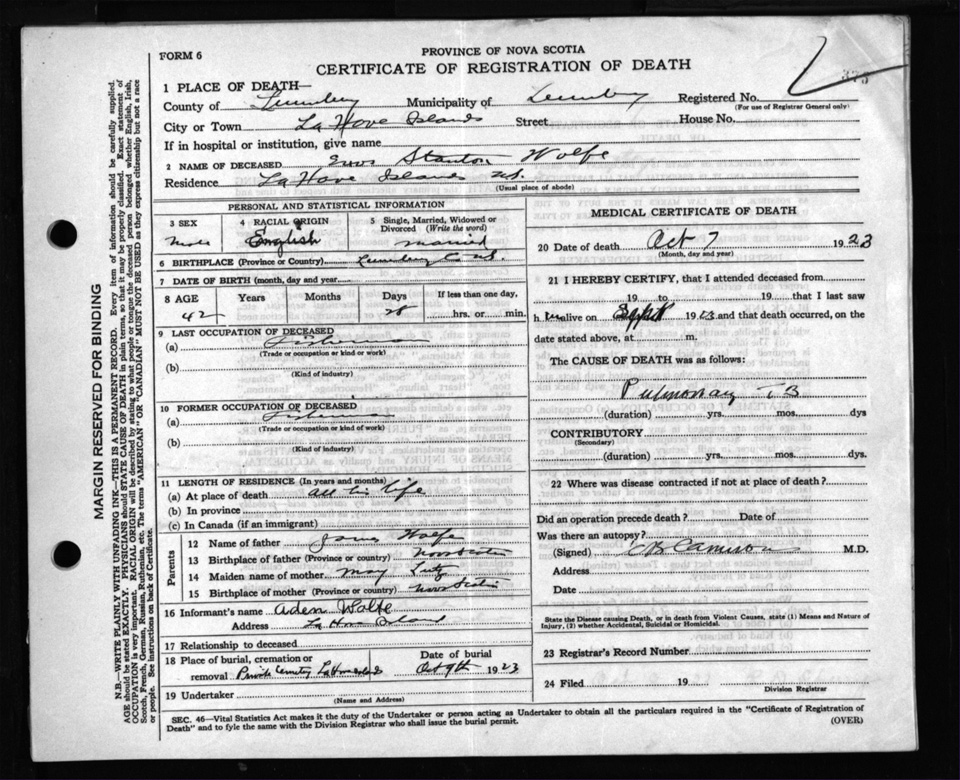 PROVINCE OF NOVA SCOTIA
FORM 6
CERTIFICATE OF REGISTRATION OF DEATH
375
1 PLACE OF DEATH—
County of Lunenburg Municipality of Lunenburg Registered No.
(For use of Registrar General only)
City or Town La Have Islands Street House No.
If in hospital or institution, give name
2 NAME OF DECEASED Stanton Wolfe
Residence La Have Islands N.S.
(Usual place of abode)
PERSONAL AND STATISTICAL INFORMATION
3 SEX 4 RACIAL ORIGIN 5 Single, Married, Widowed or Divorced (Write the word)
Male English married
6 BIRTHPLACE (Province or Country) Lunenburg Co N.S.
7 DATE OF BIRTH (month, day and year)
8 AGE Years Months Days If less than one day,
42 28 hrs. or min.
9 LAST OCCUPATION OF DECEASED
(a) Fisherman
(Trade or occupation or kind or work)
(b)
(Kind of industry)
10 FORMER OCCUPATION OF DECEASED
(a) Fisherman
(Trade or occupation or kind or work)
(b)
(Kind of industry)
11 LENGTH OF RESIDENCE (In years and months)
(a) At place of death all his life
(b) In province
(c) In Canada (if an immigrant)
Parents
12 Name of father James Wolfe
13 Birthplace of father (Province or country) Nova Scotia
14 Maiden name of mother May Lutz
15 Birthplace of mother (Province or country) Nova Scotia
16 Informant's name Aden Wolfe
Address La Have Island
17 Relationship to deceased
18 Place of burial, cremation or removal Date of burial
Private Cemetery La Have Islands Oct 9th 1923
19 Undertaker
(Name and Address)
MEDICAL CERTIFICATE OF DEATH
20 Date of death Oct 7 1923
(Month, day and year)
21 I HEREBY CERTIFY, that I attended deceased from
19 to 19 that I last saw
h im alive on Sept 1923 and that death occurred, on the
date stated above, at m.
The CAUSE OF DEATH was as follows:
Pulmonary TB
(duration) yrs. mos. dys
CONTRIBUTORY
(Secondary)
(duration) yrs. mos. dys.
22 Where was disease contracted if not at place of death?
Did an operation precede death? Date of
Was there an autopsy?
(Signed) CB Cameron M.D.
Address
Date
State the Disease causing Death, or in death from Violent Causes, state (1) Means and Nature of Injury, (2) whether Accidental, Suicidal or Homicidal.
23 Registrar's Record Number
24 Filed 19
Division Registrar
SEC. 46—Vital Statistics Act makes it the duty of the Undertaker or person acting as Undertaker to obtain all the particulars required in the "Certificate of Registration of
Death" and to fyle the same with the Division Registrar who shall issue the burial permit. (OVER)
MARGIN RESERVED FOR BINDING
N.B.—WRITE PLAINLY WITH UNFADING INK—THIS IS A PERMANENT RECORD. Every item of information should be carefully supplied.
AGE should be stated EXACTLY. PHYSICIANS should STATE CAUSE OF DEATH in plain terms, so that it may be properly classified. Exact statement of
OCCUPATION is very important. RACIAL ORIGIN will be described by stating to what people or tongue the deceased person belonged whether English, Irish,
Scotch, French, German, Russian, Ruthenian, etc. The terms "AMERICAN" OR "CANADIAN" MUST NOT BE USED as they express citizenship but not a race
or people. See instructions on back of Certificate.